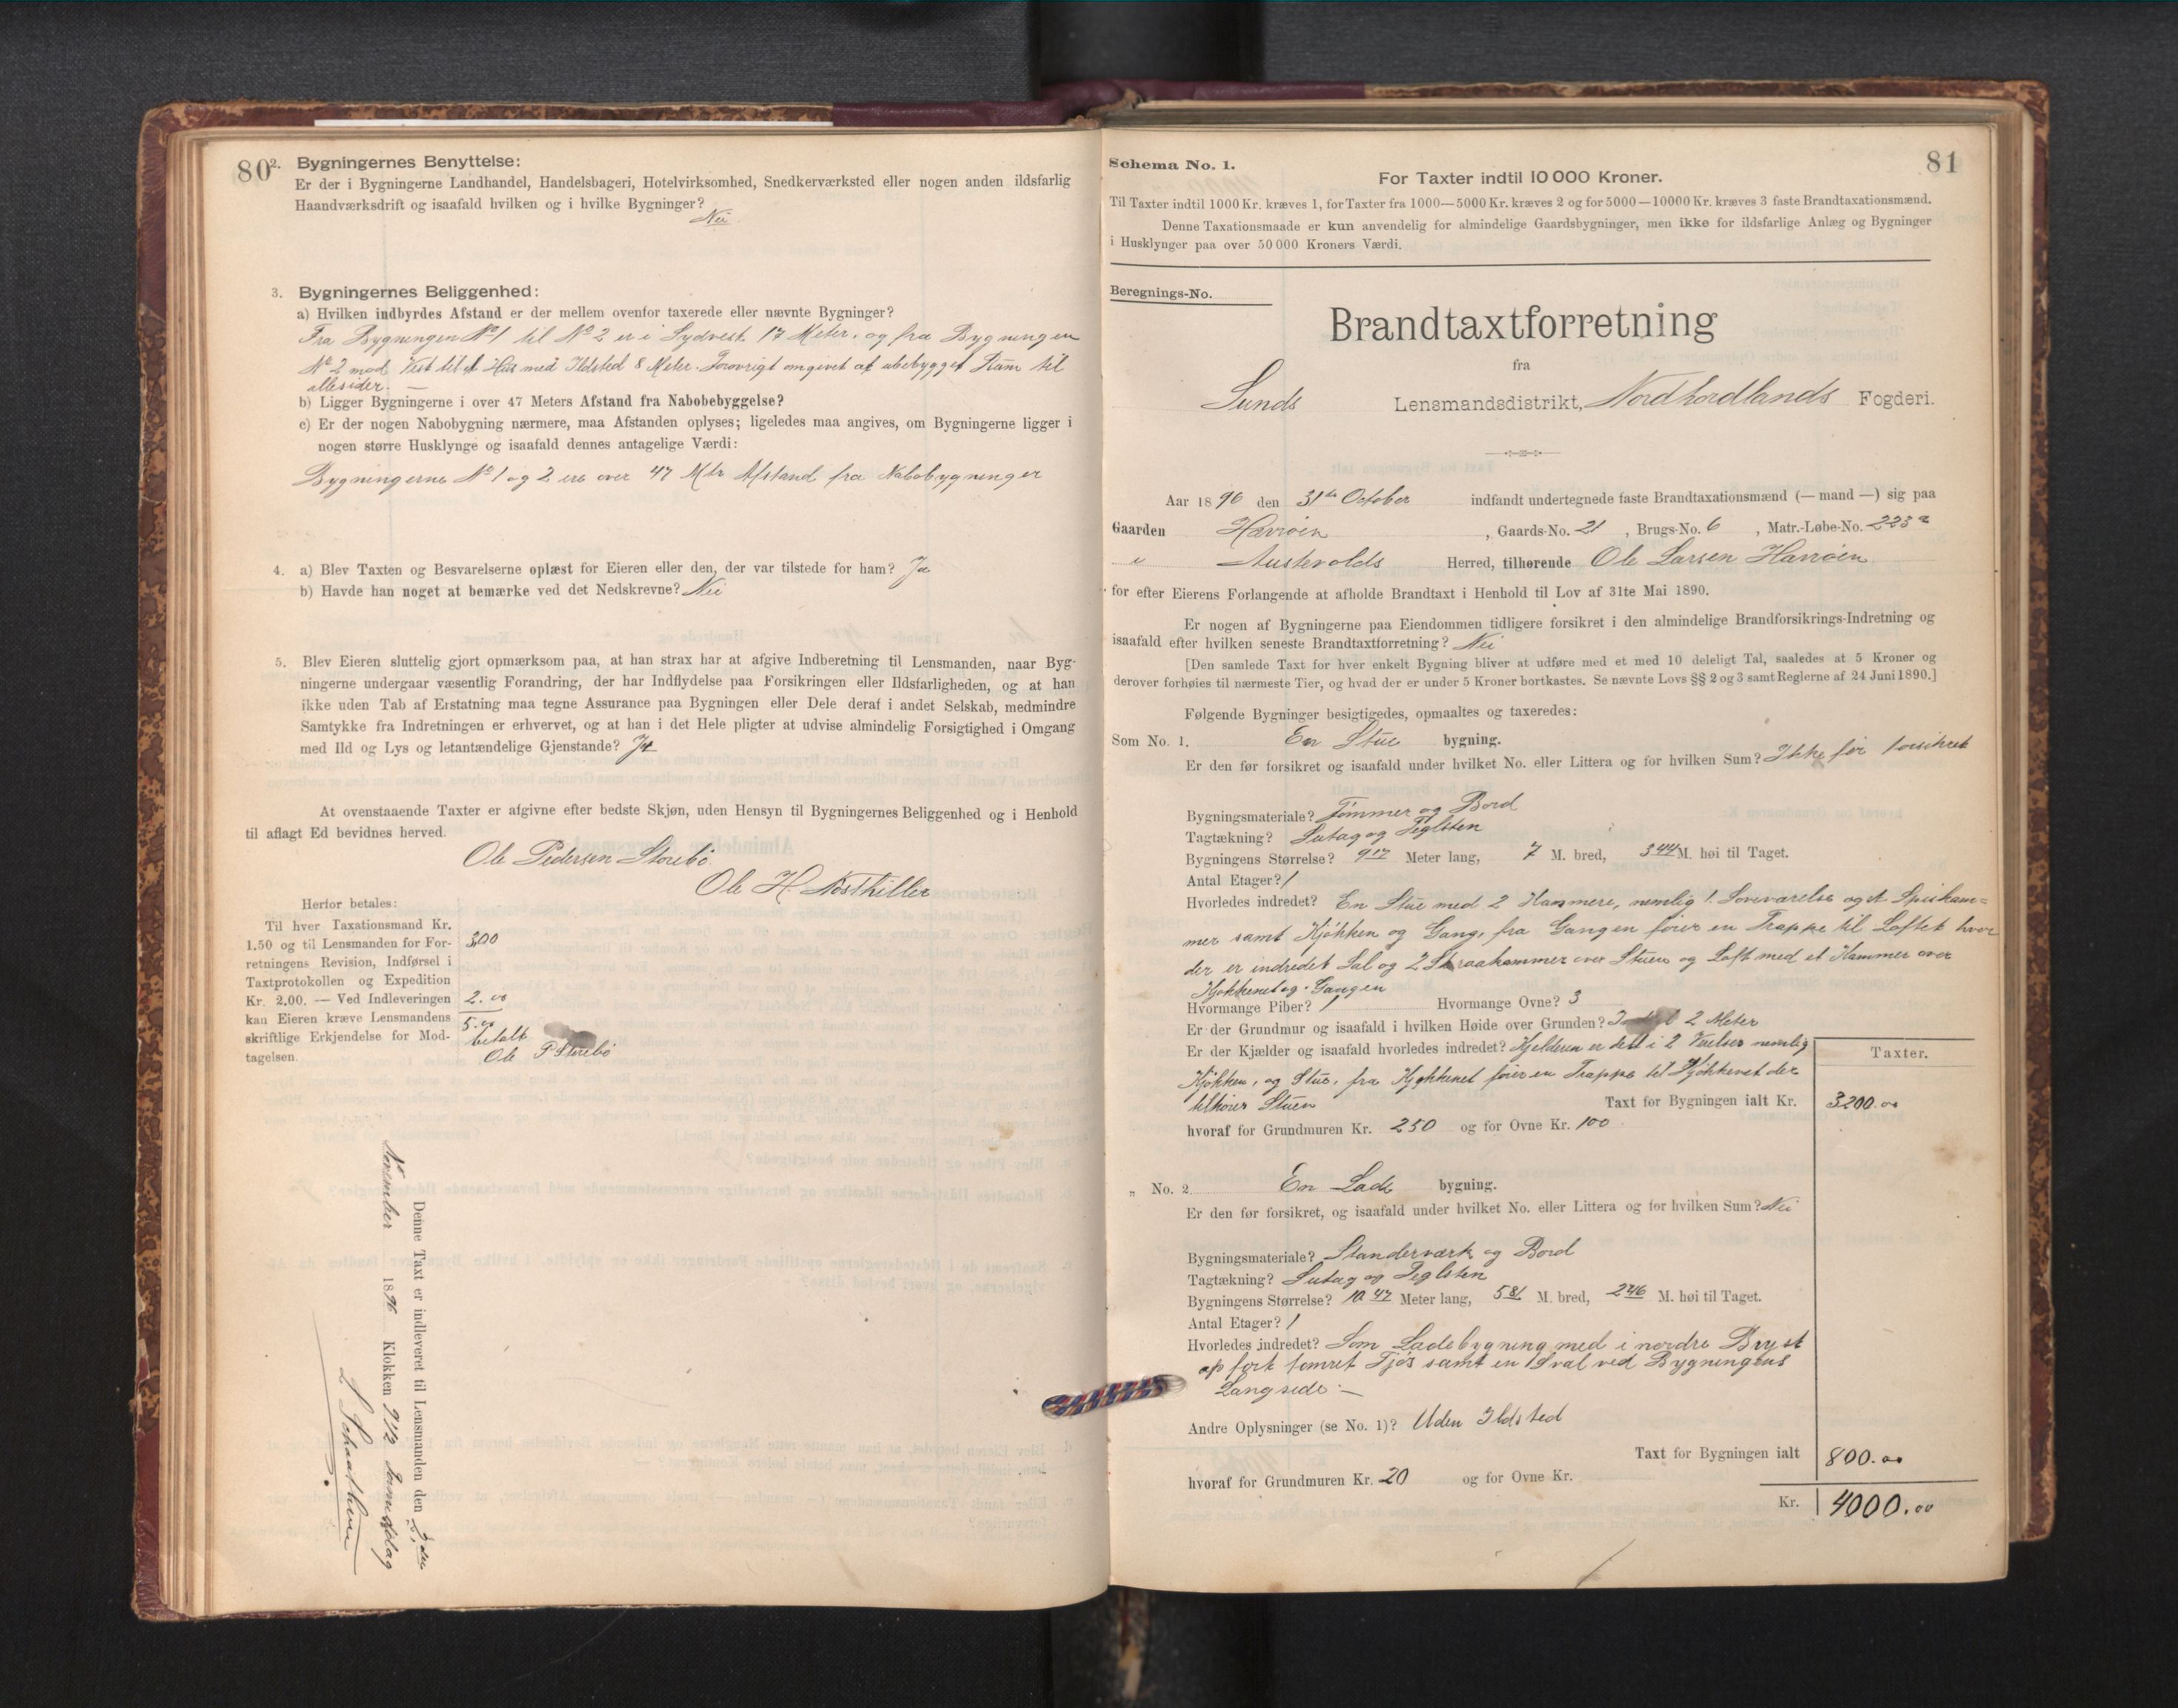 80
2. Bygningernes Benyttelse:
Er der i Bygningerne Landhandel, Handelsbageri, Hotelvirksomhed, Snedkerværksted eller nogen anden ildsfarlig
Haandværksdrift og isaafald hvilken og i hvilke Bygninger?
Nei
3. Bygningernes Beliggenhed:
a) Hvilken indbyrdes Afstand er der mellem ovenfor taxerede eller nævnte Bygninger?
Fra Bygningen No 1 til No 2 er i Sydvest 17 Meter, og fra Bygningen
No 2 mod Vest til et Hus med Ildsted 8 Meter. Forøvrigt omgivet af ubebygget Rum til
allesider. —
b) Ligger Bygningerne i over 47 Meters Afstand fra Nabobebyggelse?
c) Er der nogen Nabobygning nærmere, maa Afstanden oplyses; ligeledes maa angives, om Bygningerne ligger i
nogen større Husklynge og isaafald dennes antagelige Værdi:
Bygningerne No 1 og 2 ere over 47 Mtr Afstand fra Nabobygninger
4. a) Blev Taxten og Besvarelserne oplæst for Eieren eller den, der var tilstede for ham? Ja
b) Havde han noget at bemærke ved det Nedskrevne? Nei
5. Blev Eieren sluttelig gjort opmærksom paa, at han strax har at afgive Indberetning til Lensmanden, naar Byg-
ningerne undergaar væsentlig Forandring, der har Indflydelse paa Forsikringen eller Ildsfarligheden, og at han
ikke uden Tab af Erstatning maa tegne Assurance paa Bygningen eller Dele deraf i andet Selskab, medmindre
Samtykke fra Indretningen er erhvervet, og at han i det Hele pligter at udvise almindelig Forsigtighed i Omgang
med Ild og Lys og letantændelige Gjenstande? Ja
At ovenstaaende Taxter er afgivne efter bedste Skjøn, uden Hensyn til Bygningernes Beliggenhed og i Henhold
til aflagt Ed bevidnes herved.
Ole Pedersen Storebø
Ole H.
Herfor betales:
Til hver Taxationsmand Kr.
1.50 og til Lensmanden for For-
retningens Revision, Indførsel i
Taxtprotokollen og Expedition
Kr. 2.00. — Ved Indleveringen
kan Eieren kræve Lensmandens
skriftlige Erkjendelse for Mod-
tagelsen.
3.00
2.00
5.00
betalt
Ole P Storebø
Denne Taxt er indleveret til Lensmanden den 2den
November 1896 Klokken 9 1/2 Formiddag
Schema No. 1.
81
For Taxter indtil 10 000 Kroner.
Til Taxter indtil 1000 Kr. kræves 1, for Taxter fra 1000—5000 Kr. kræves 2 og for 5000—10000 Kr. kræves 3 faste Brandtaxationsmænd.
Denne Taxationsmaade er kun anvendelig for almindelige Gaardsbygninger, men ikke for ildsfarlige Anlæg og Bygninger
i Husklynger paa over 50 000 Kroners Værdi.
Beregnings-No.
Brandtaxtforretning
fra
Sunds Lensmandsdistrikt, Nordhordlands Fogderi.
Aar 1896 den 31te October indfandt undertegnede faste Brandtaxationsmænd (— mand —) sig paa
Gaarden Havrøen, Gaards-No. 21, Brugs-No. 6, Matr.-Løbe-No. 223a
i Austevolds Herred, tilhørende Ole Larsen Havrøen
for efter Eierens Forlangende at afholde Brandtaxt i Henhold til Lov af 31te Mai 1890.
Er nogen af Bygningerne paa Eiendommen tidligere forsikret i den almindelige Brandforsikrings-Indretning og
isaafald efter hvilken seneste Brandtaxtforretning? Nei
[Den samlede Taxt for hver enkelt Bygning bliver at udføre med et med 10 deleligt Tal, saaledes at 5 Kroner og
derover forhøies til nærmeste Tier, og hvad der er under 5 Kroner bortkastes. Se nævnte Lovs §§ 2 og 3 samt Reglerne af 24 Juni 1890.]
Følgende Bygninger besigtigedes, opmaaltes og taxeredes:
Som No. 1. En Stue bygning.
Er den før forsikret og isaafald under hvilket No. eller Littera og for hvilken Sum? Ikke før forsikret
Bygningsmateriale? Tømmer og Bord
Tagtækning? Sutag og Teglsten
Bygningens Størrelse? 9 17 Meter lang, 7 M. bred, 3 44 M. høi til Taget.
Antal Etager? 1
Hvorledes indredet? En Stue med 2 Kammere, nemlig 1 Soveværelse og et Spiskam=
mer samt Kjøkken og Gang, fra Gangen fører en Trappe til Loftet hvor
der er indredet Sal og 2 Skraakammer over Stuen og Loft med et Kammer over
Kjøkkenet og Gangen
Hvormange Piber? 1 Hvormange Ovne? 3
Er der Grundmur og isaafald i hvilken Høide over Grunden? 2 Meter
Er der Kjælder og isaafald hvorledes indredet? Kjelderen er delt i 2 nemlig
Kjøkken, og Stue, fra Kjøkkenet fører en Trappe til Kjøkkenet der
tilhører Stuen
Taxter.
Taxt for Bygningen ialt Kr. 3200.00
hvoraf for Grundmuren Kr. 250 og for Ovne Kr. 100
„ No. 2. En Lade bygning.
Er den før forsikret, og isaafald under hvilket No. eller Littera og for hvilken Sum? Nei
Bygningsmateriale? Standerværk og Bord
Tagtækning? Sutag og Teglsten
Bygningens Størrelse? 10 47 Meter lang, 5 81 M. bred, 2 46 M. høi til Taget.
Antal Etager? 1
Hvorledes indredet? Som Ladebygning med i nordre Bryst
opført tømret Fjøs samt en Sval ved Bygningens
Langside. —
Andre Oplysninger (se No. 1)? Uden Ildsted
Taxt for Bygningen ialt 800.00
hvoraf for Grundmuren Kr. 20 og for Ovne Kr.
Kr. 4000.00